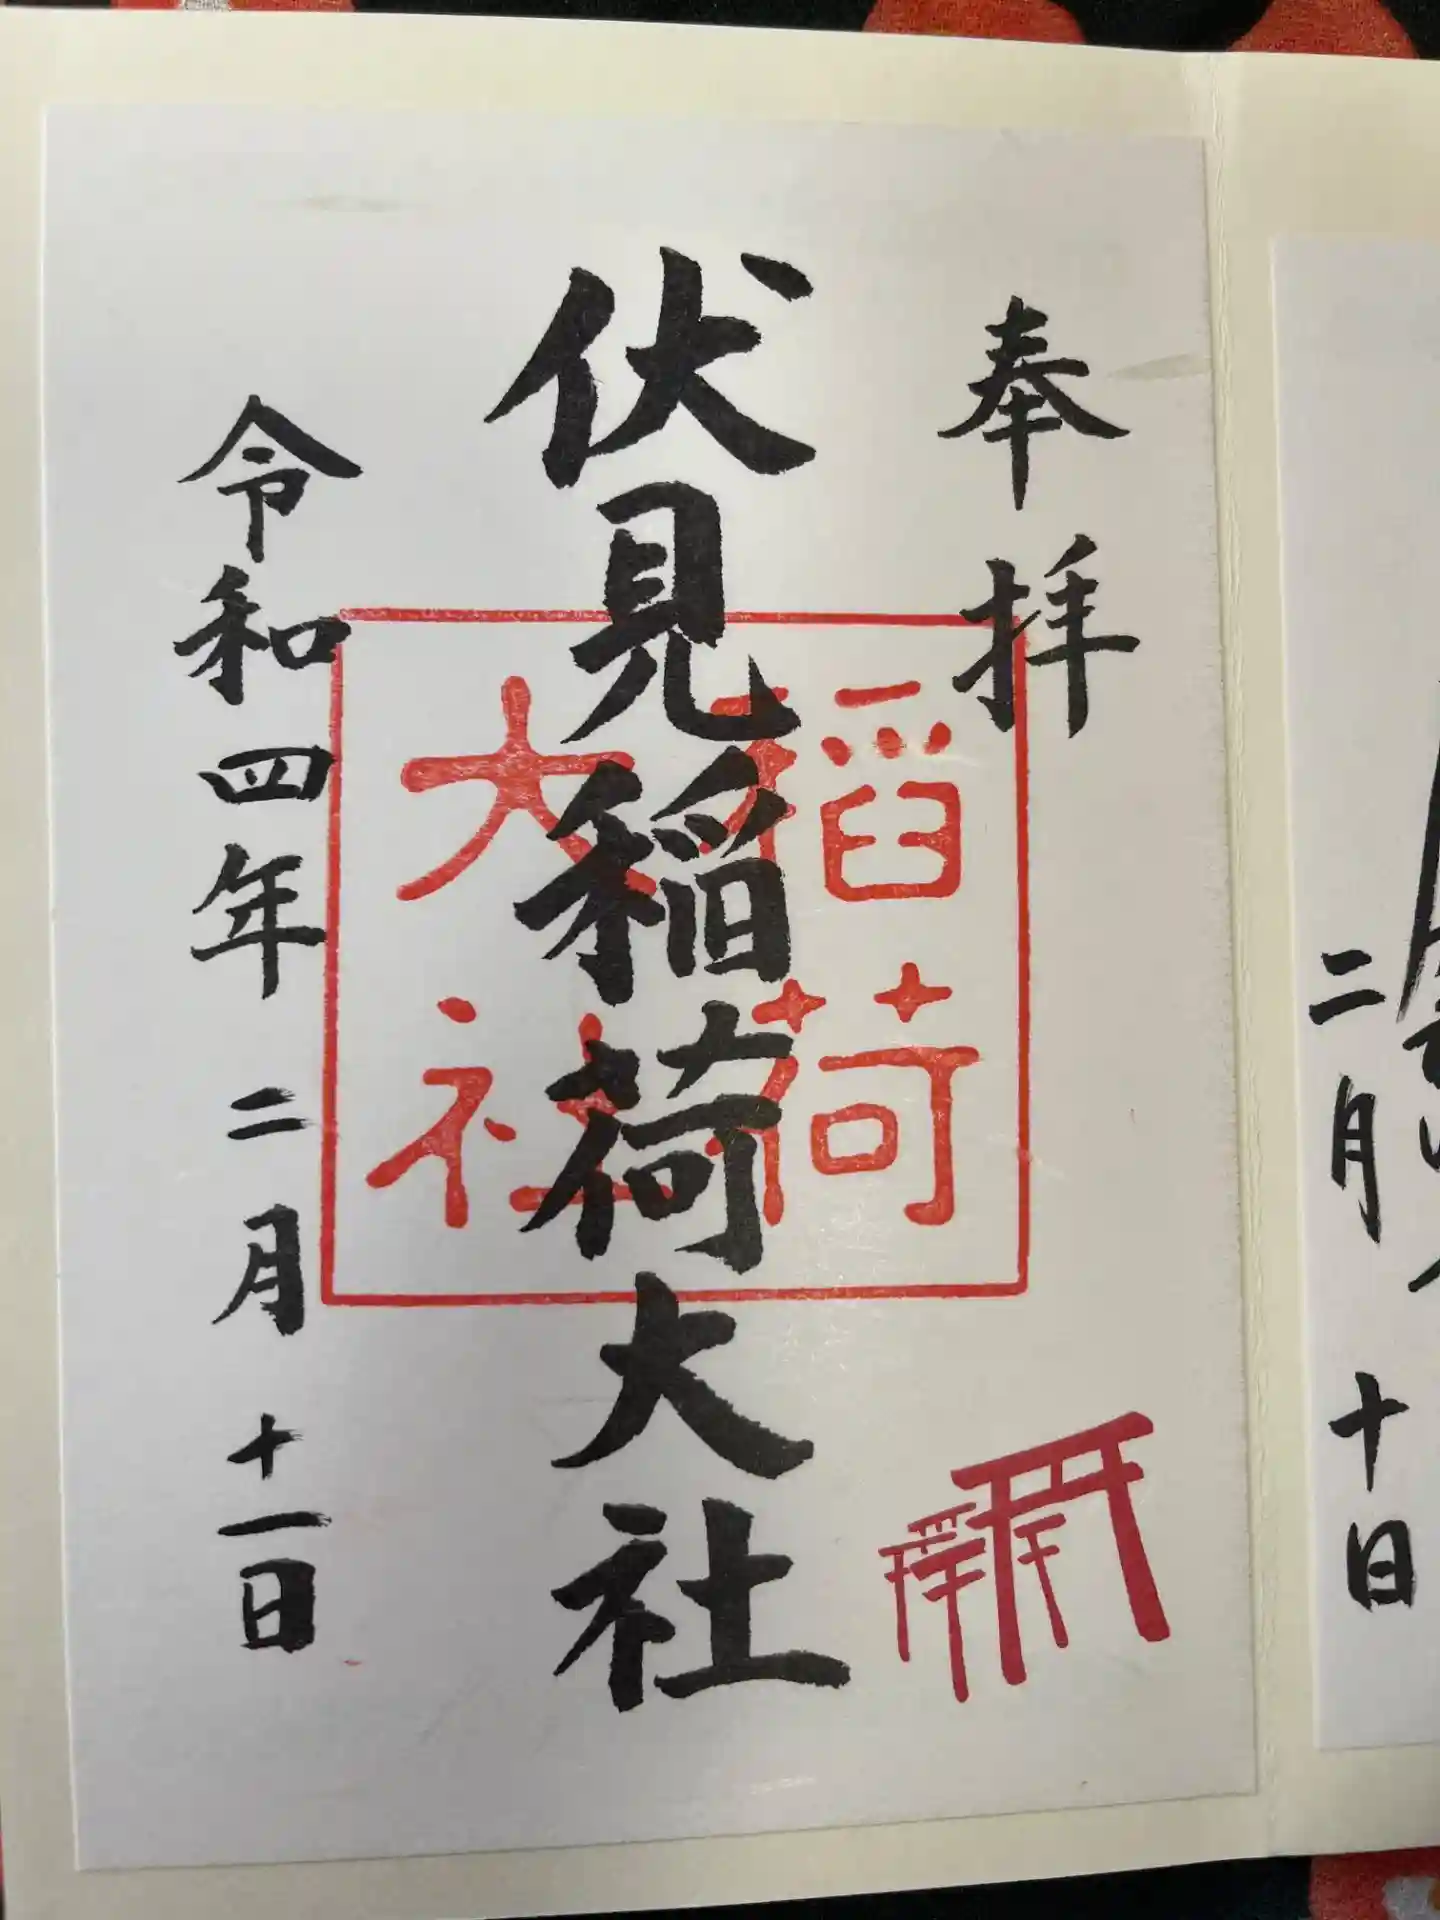 二月十日
奉拝
伏見稲荷大社
稲荷
大社
令和四年二月十一日